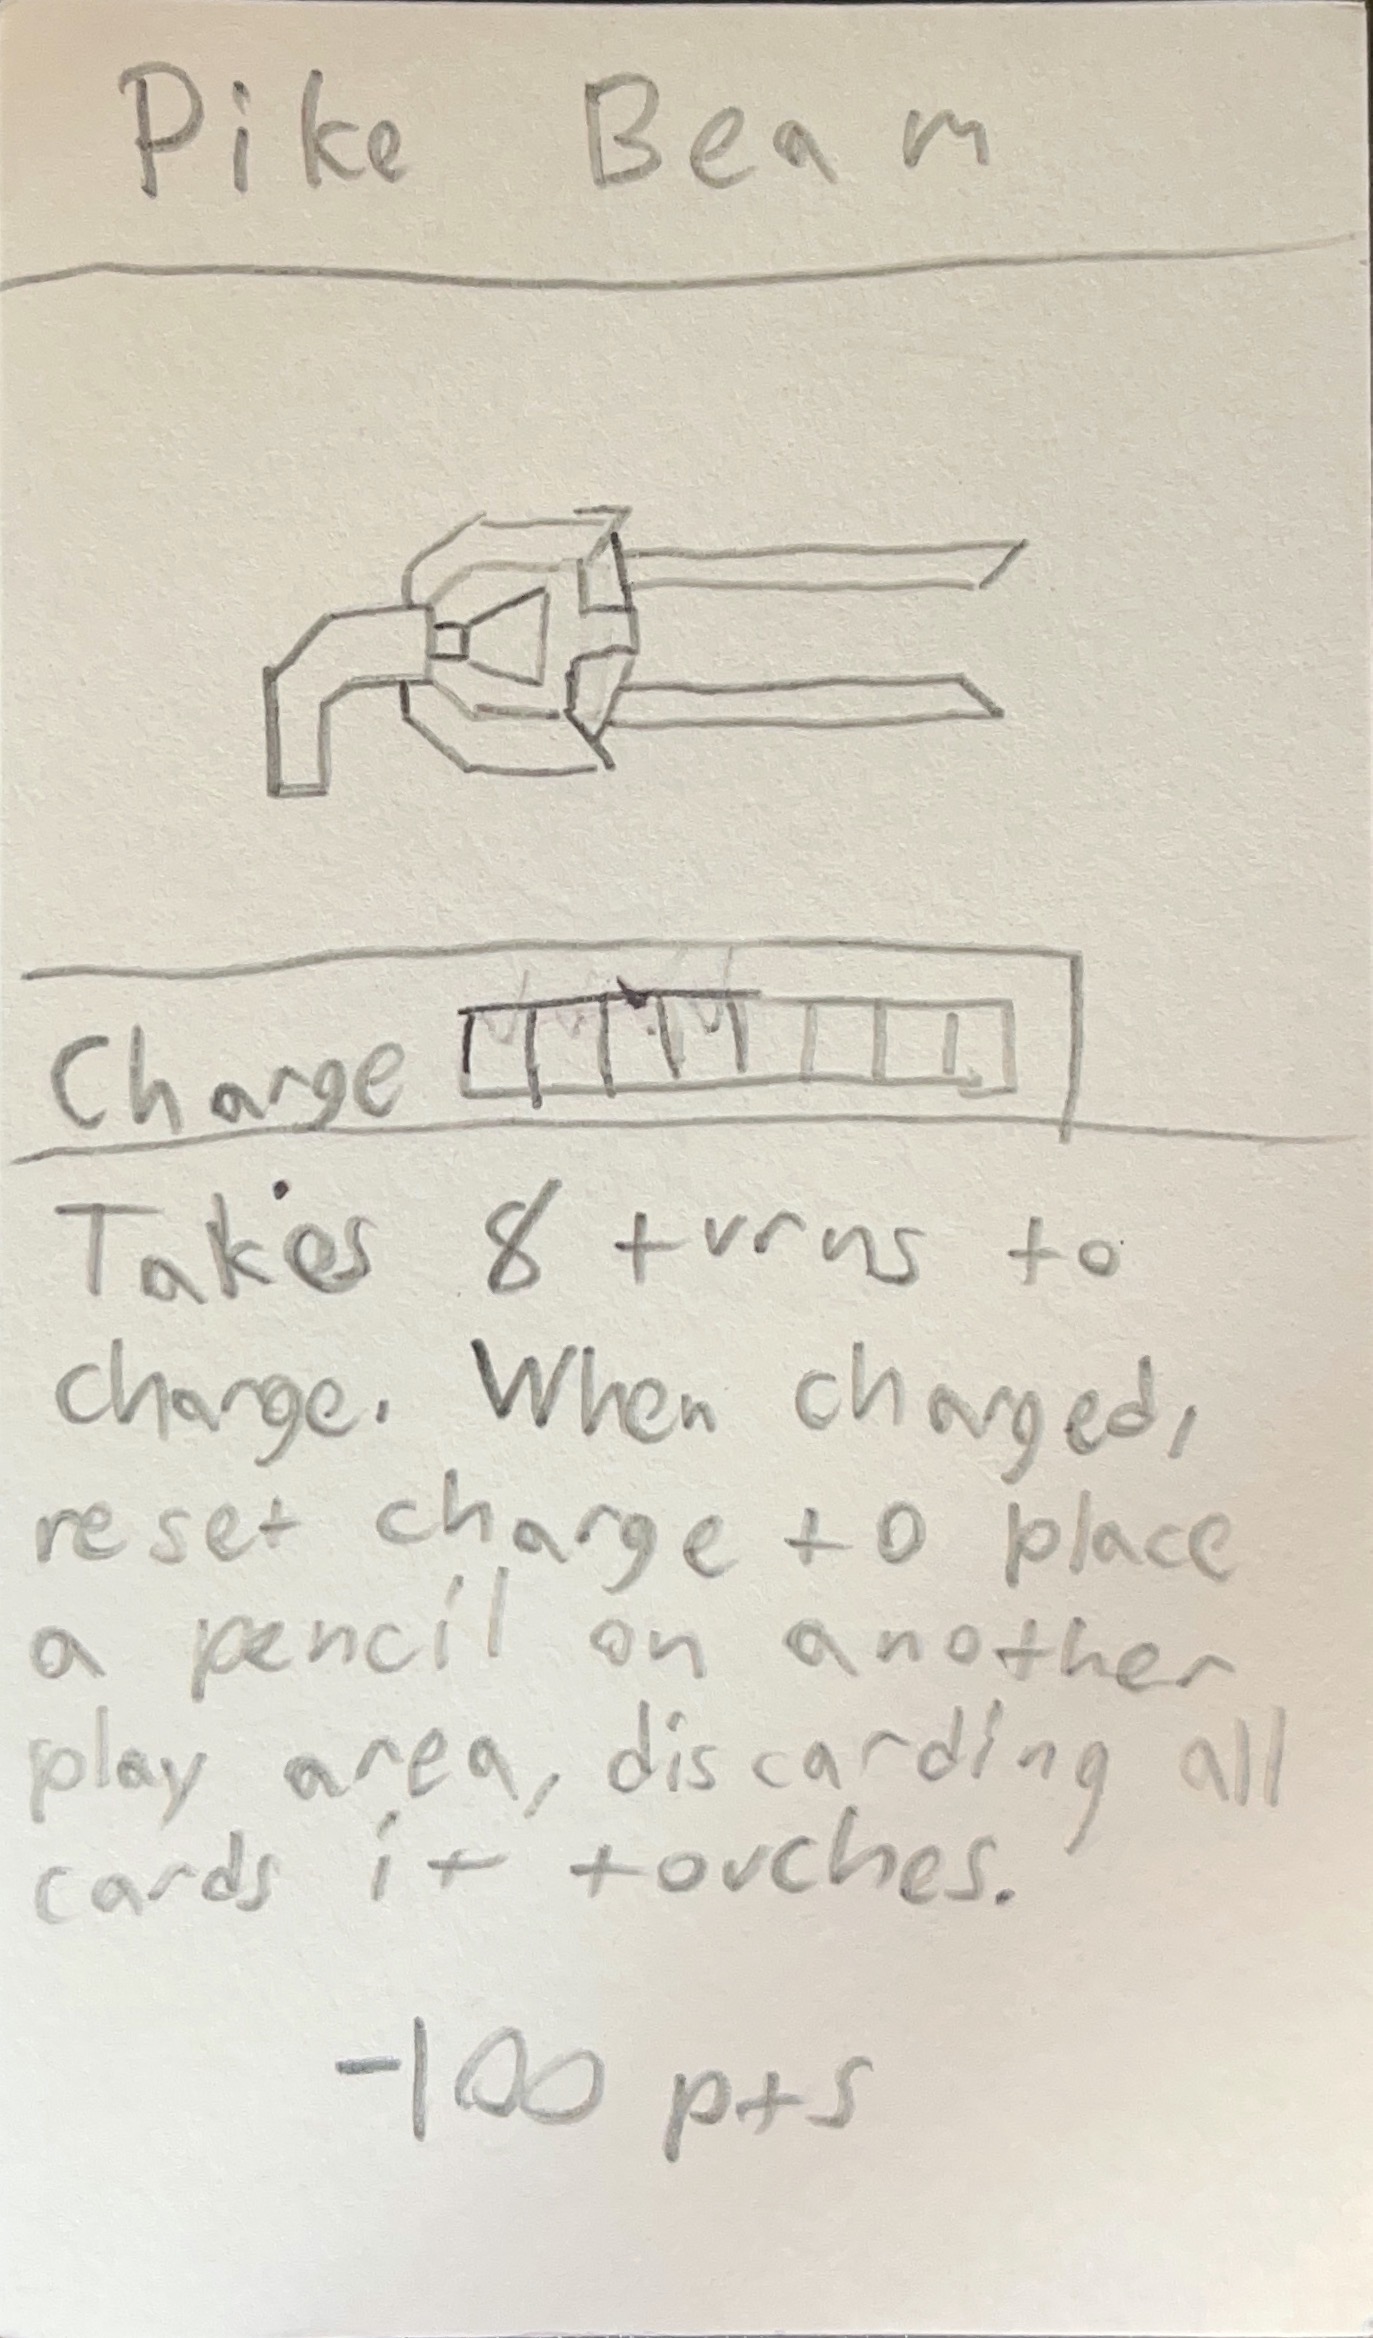 Pike Beam
Charge
Takes 8 turns to
charge. When charged,
reset charge to place
a pencil on another
play area, discarding all
cards it touches.
-100 pts